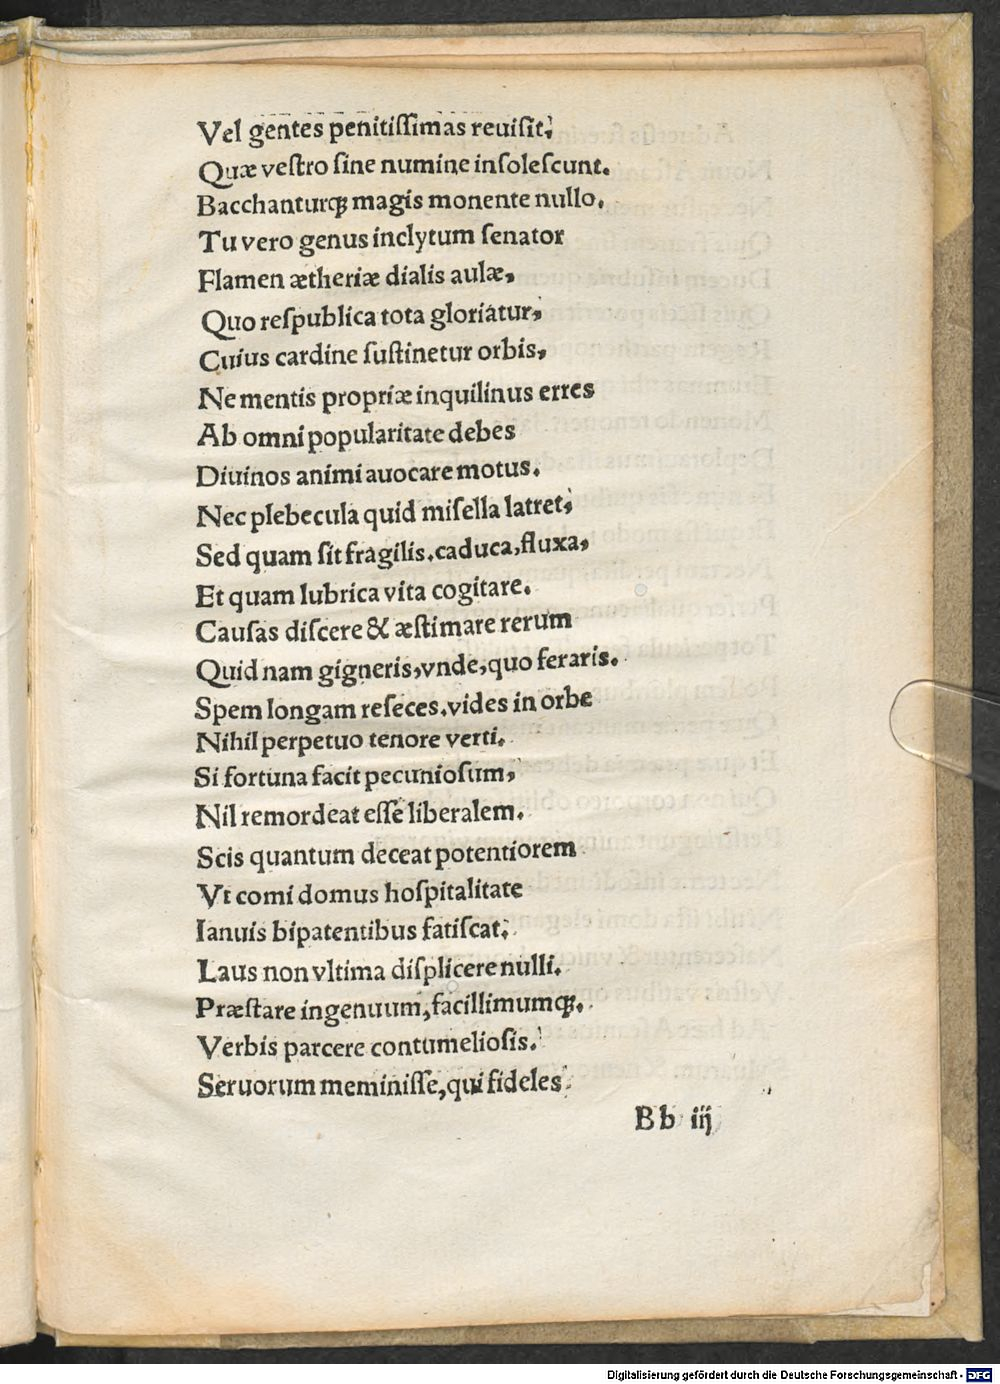 Vel gentes penitiſſimas reuiſit;
Quæ veſtro ſine numine inſoleſcunt.
Bacchanturqꝫ magis monente nullo.
Tu vero genus inclytum ſenator
Flamen ætheriæ dialis aulæ,
Quo reſpublica tota gloriatur,
Cuius cardine ſuſtinetur orbis,
Ne mentis propriæ inquilinus erres
Ab omni popularitate debes
Diuinos animi auocare motus.
Nec plebecula quid miſella latret,
Sed quam ſit fragilis.caduca,fluxa,
Et quam lubrica vita cogitare.
Cauſas diſcere & æſtimare rerum
Quid nam gigneris,vnde,quo feraris.
Spem longam reſeces.vides in orbe
Nihil perpetuo tenore verti.
Si fortuna facit pecunioſum,
Nil remordeat eſſe liberalem.
Scis quantum deceat potentiorem
Vt comi domus hoſpitalitate
Ianuis bipatentibus fatiſcat.
Laus non vltima diſplicere nulli.
Præſtare ingenuum,facillimumqꝫ.
Verbis parcere contumelioſis.
Seruorum meminiſſe,qui fideles
B b iij
Digitalisierung gefördert durch die Deutsche Forschungsgemeinschaft - DFG